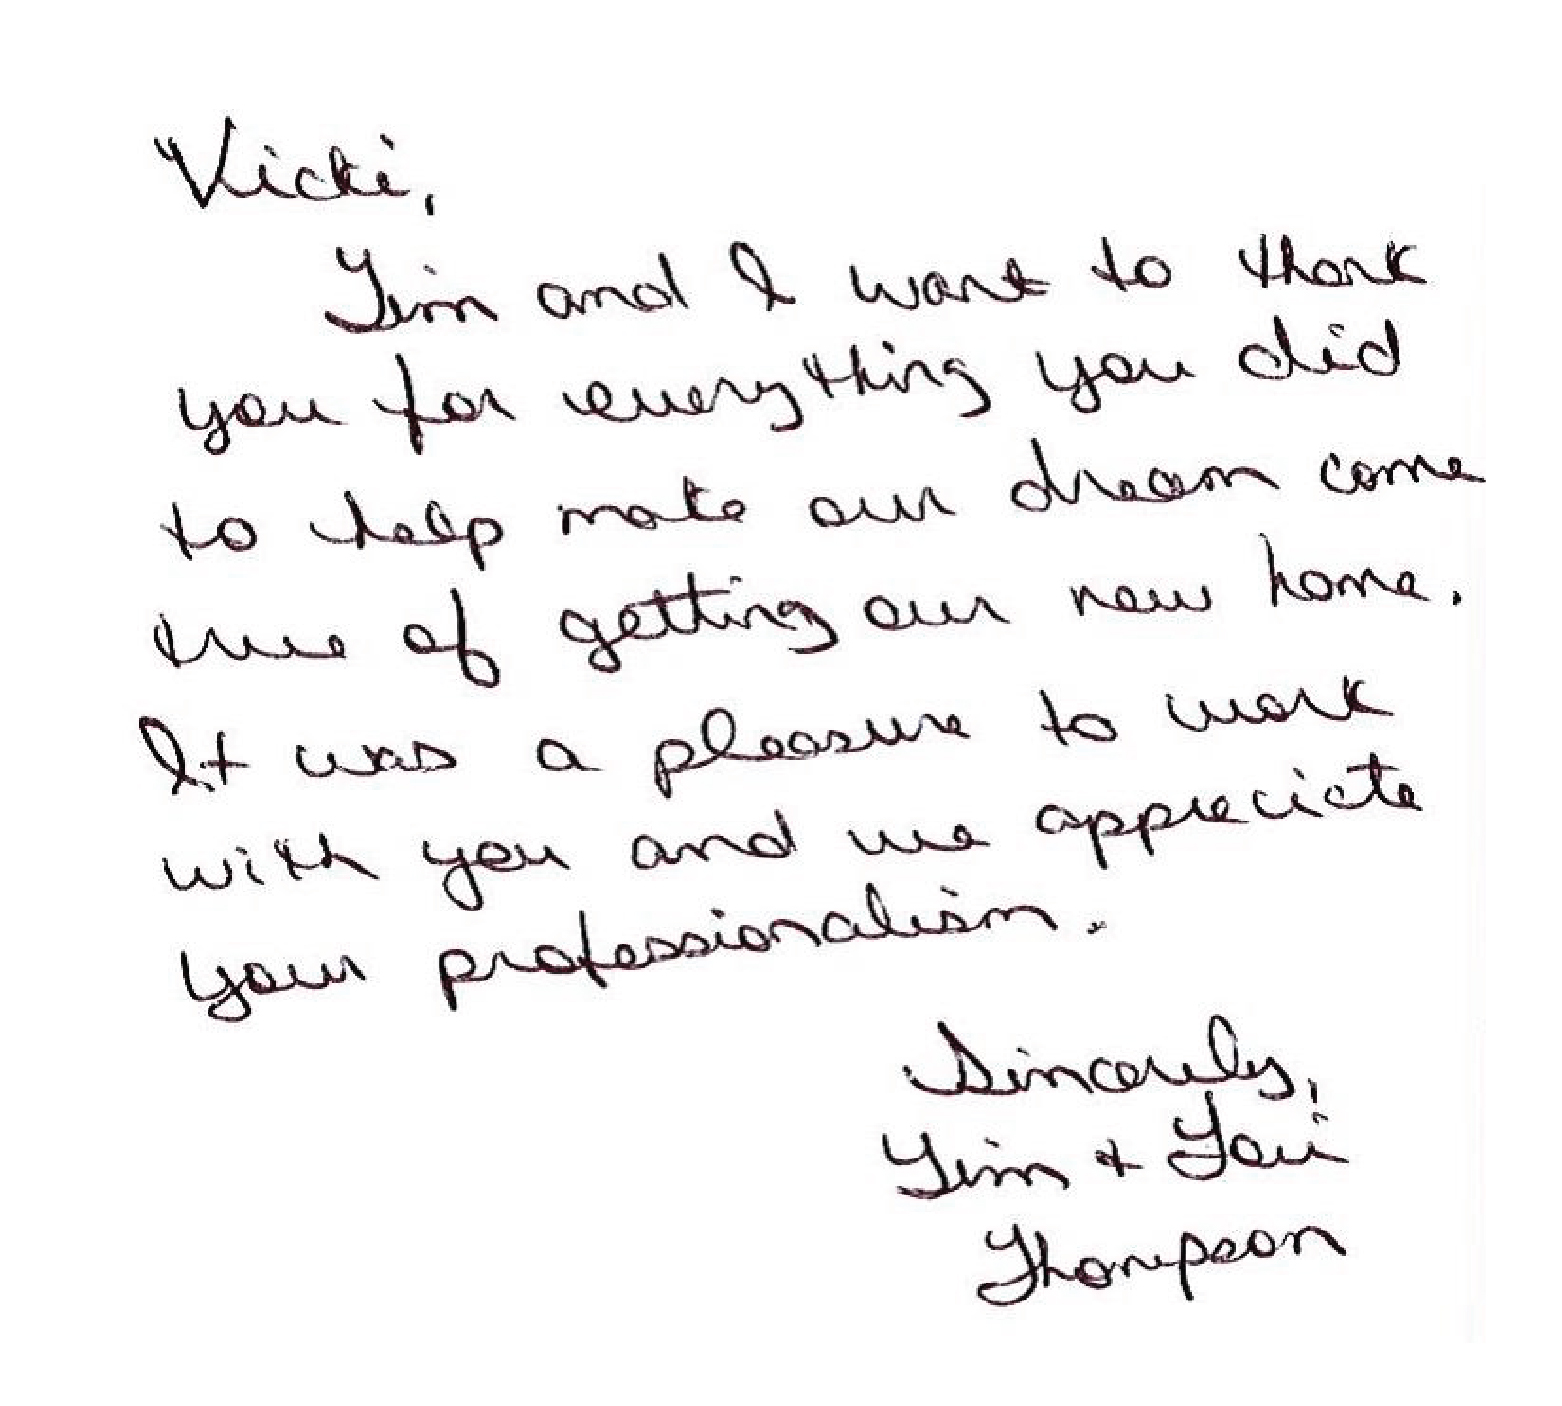 Vicki,
Tim and I want to thank
you for everything you did
to help make our dream come
true of getting our new home.
It was a pleasure to work
with you and we appreciate
your professionalism.
Sincerely,
Tim + Tori
Thompson